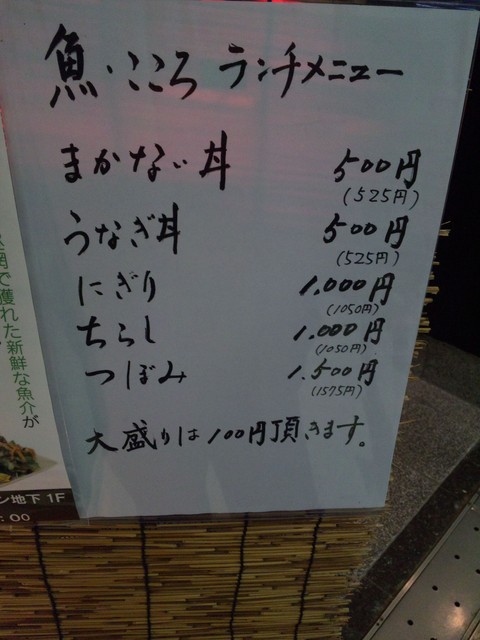 魚・こころ ランチメニュー
まかない丼 500円
(525円)
うなぎ丼 500円
(525円)
にぎり 1.000円
(1050円)
ちらし 1.000円
(1050円)
つぼみ 1.500円
(1575円)
大盛りは100円頂きます。
網で獲れた新鮮な魚介が
ン地下1F
:00